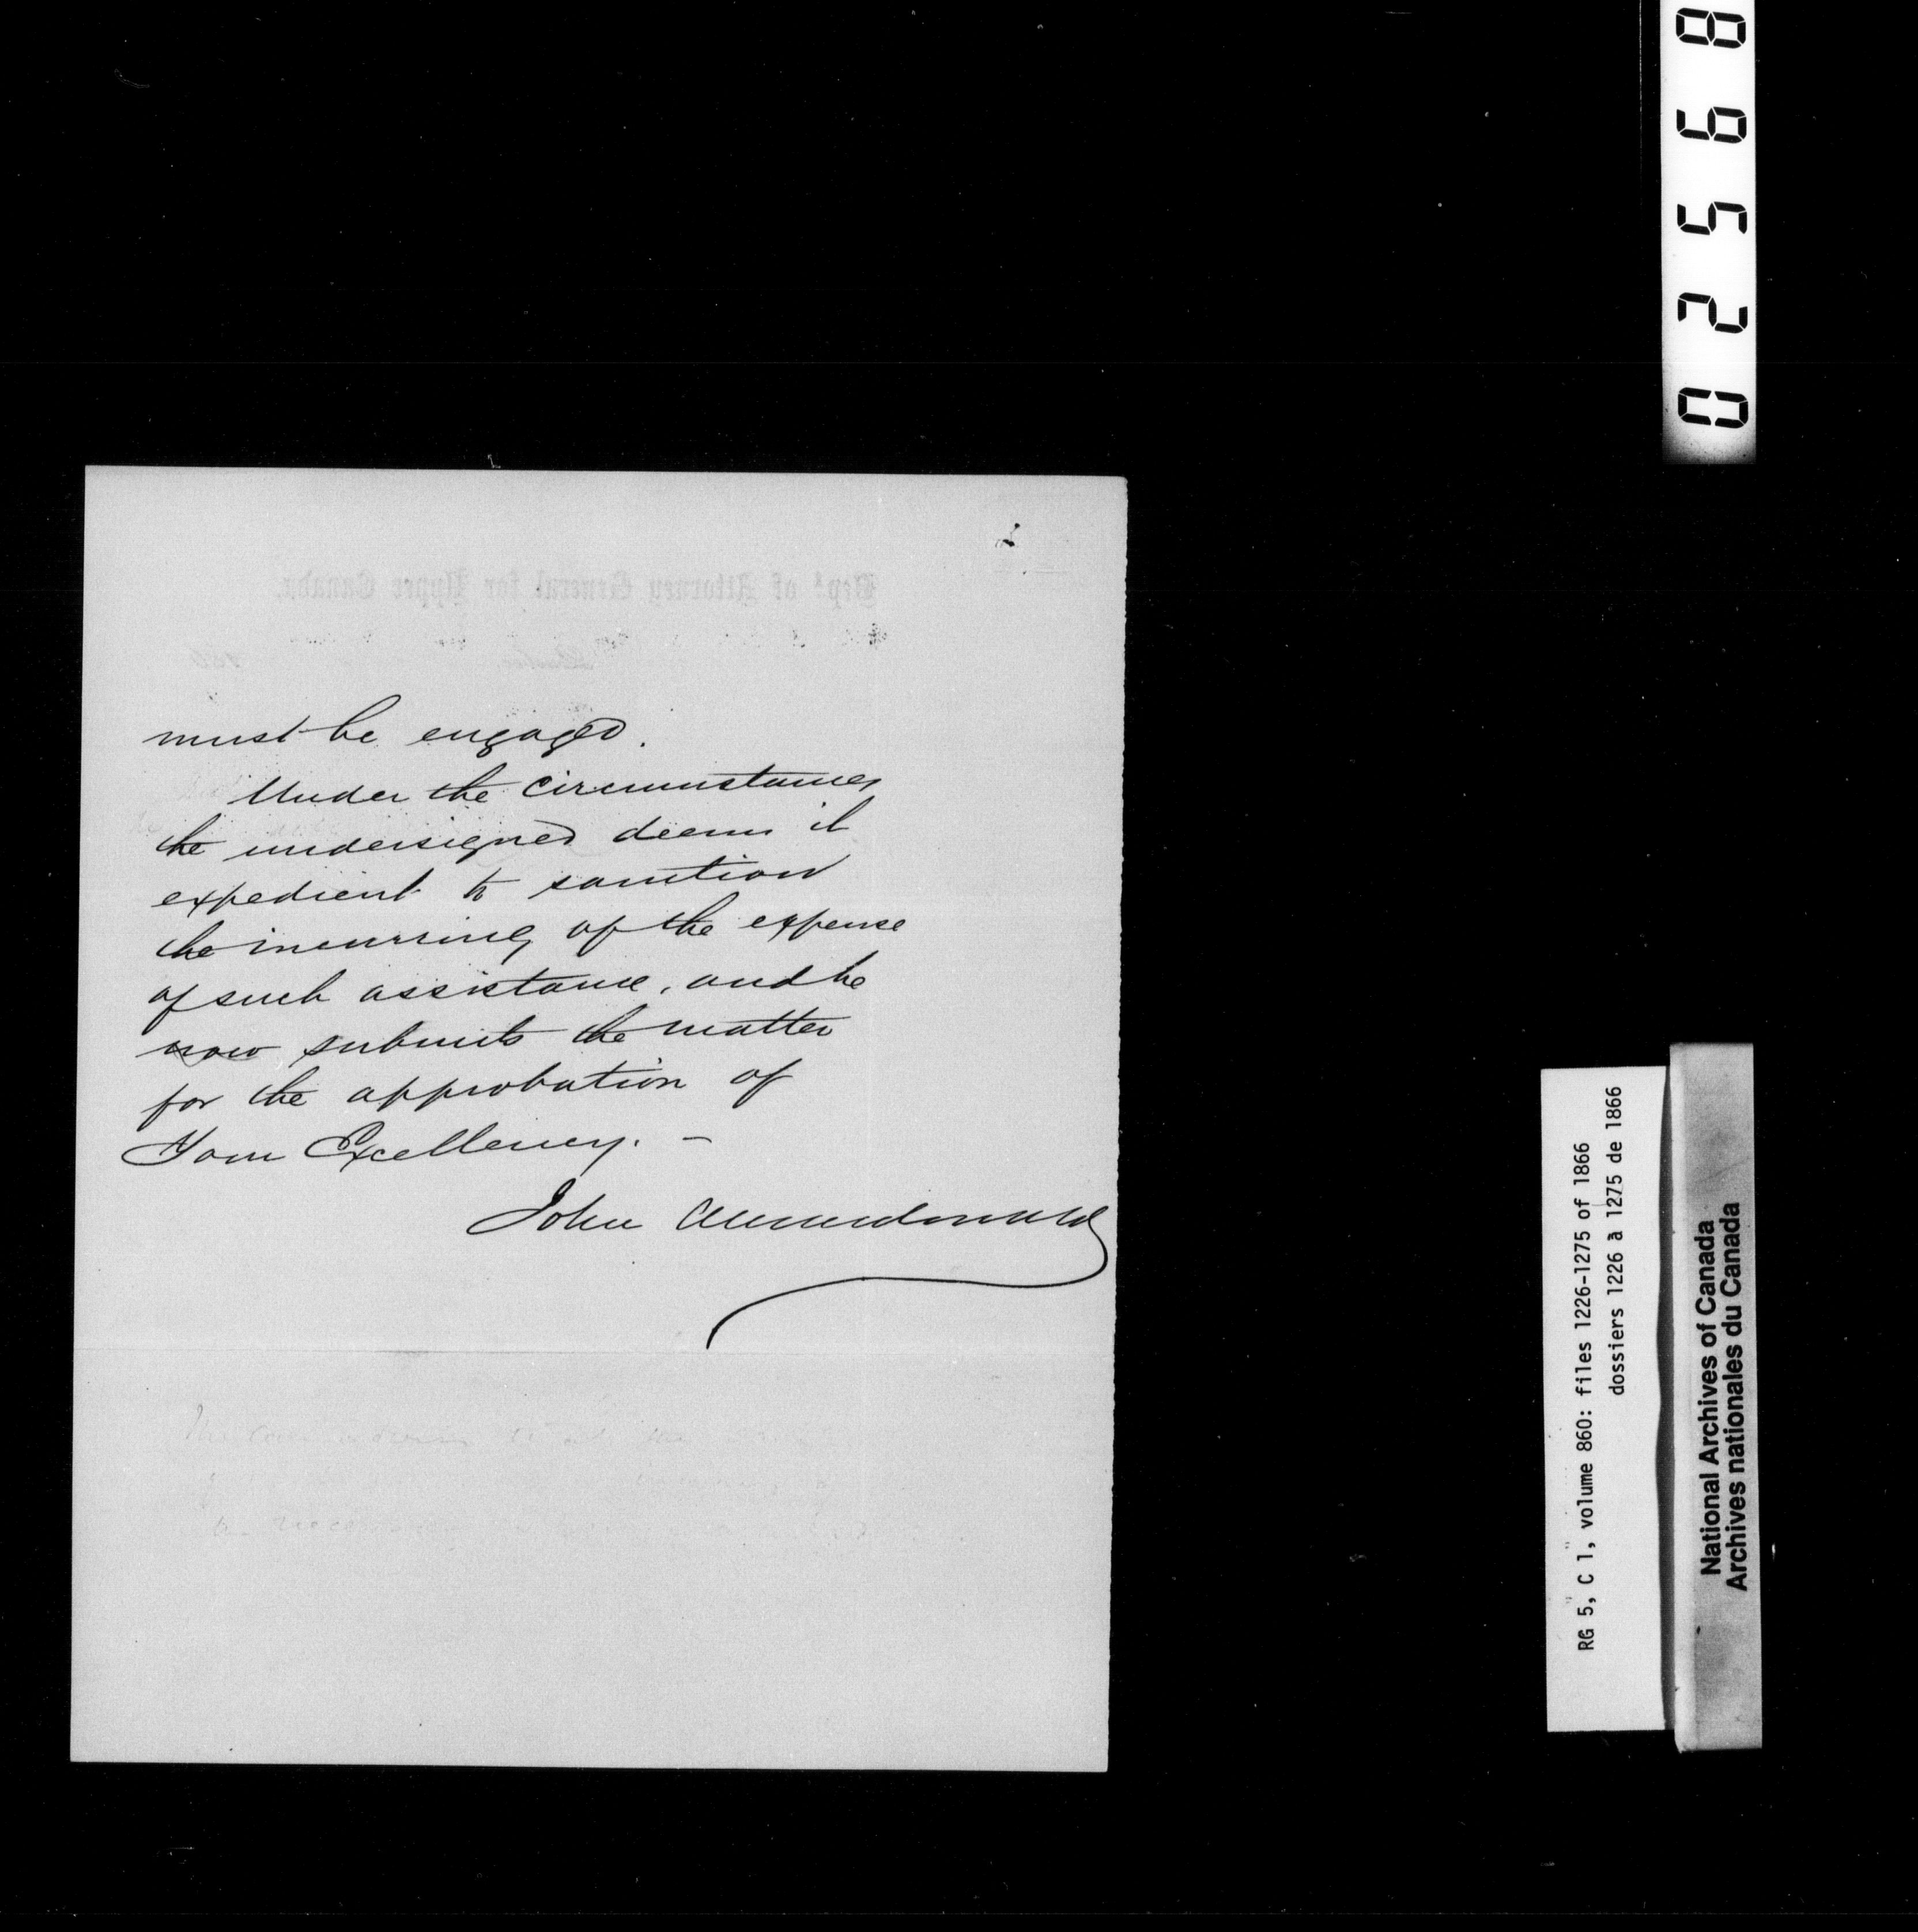 02568
Dept. of Attorney General for Upper Canada.
186
must be engaged.
Under the circumstances
the undersigned deems it
expedient to sanction
the incurring of the expense
of such assistance, and he
now submits the matter
for the approbation of
Your Excellency. –
John A Macdonald
RG 5, C 1, volume 860: files 1226-1275 of 1866
dossiers 1226 à 1275 de 1866
National Archives of Canada
Archives nationales du Canada